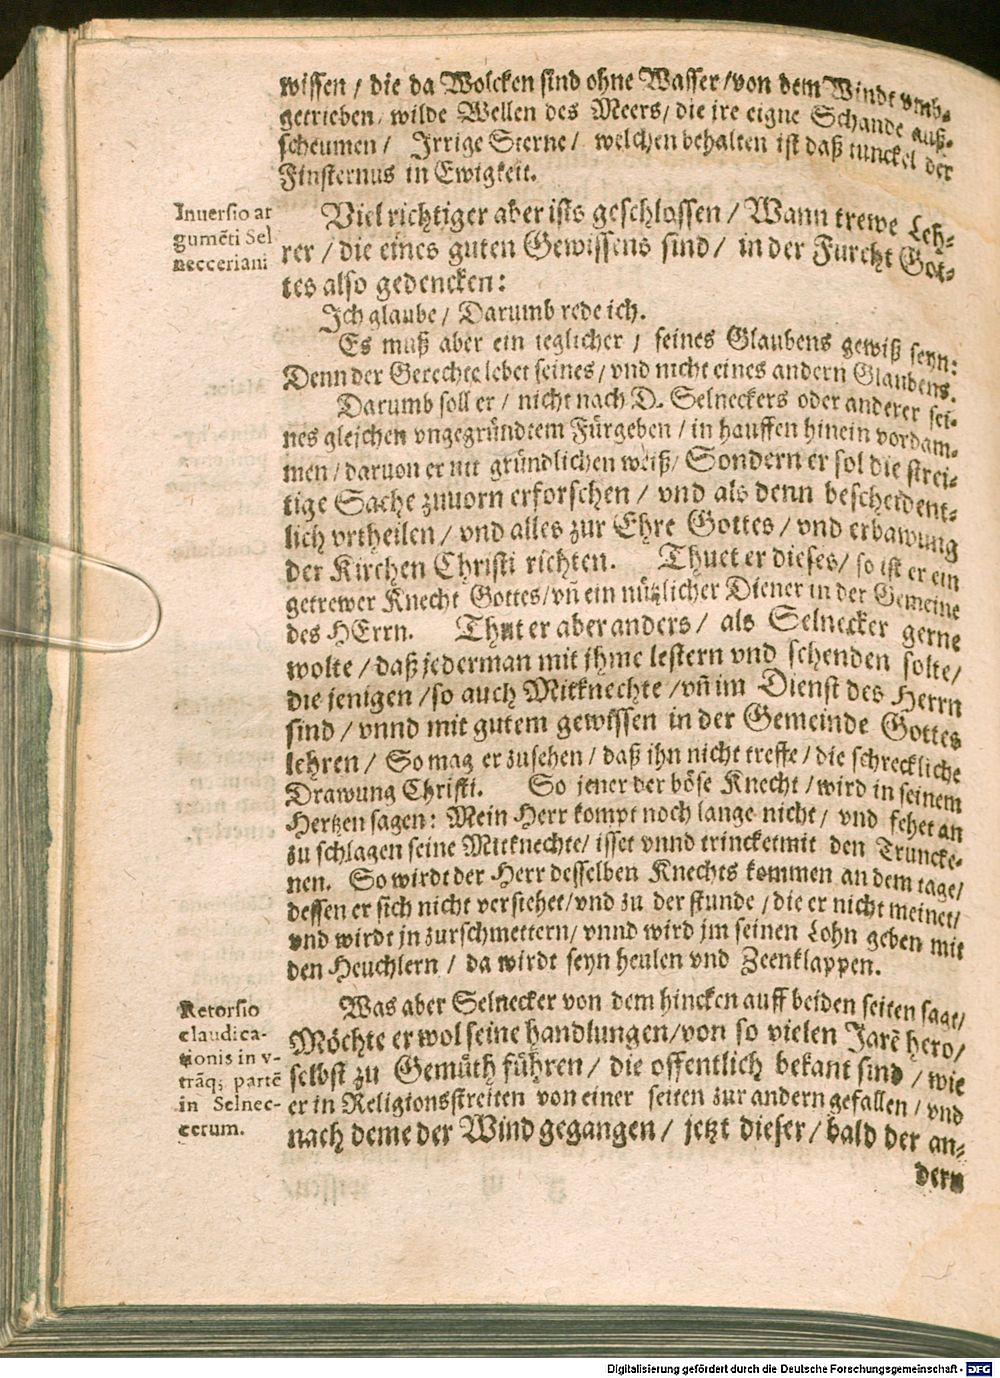 wissen / die da Wolcken sind ohne Wasser / von dem Windt vmb-
getrieben / wilde Wellen des Meers / die jre eigne Schande auß-
scheumen / Jrrige Sterne / welchen behalten ist daß tunckel der
Finsternus in Ewigkeit.
Inuersio ar
gumēti Sel
necceriani
Viel richtiger aber ists geschlossen / Wann trewe Leh-
rer / die eines guten Gewissens sind / in der Furcht Got-
tes also gedencken:
Jch glaube / Darumb rede ich.
Es muß aber ein jeglicher / seines Glaubens gewiß seyn:
Denn der Gerechte lebet seines / vnd nicht eines andern Glaubens.
Darumb soll er / nicht nach D. Selneckers oder anderer sei-
nes gleichen vngegründtem Fürgeben / in hauffen hinein vordam-
men / daruon er nit gründlichen weiß / Sondern er sol die strei-
tige Sache zuuorn erforschen / vnd als denn bescheident-
lich vrtheilen / vnd alles zur Ehre Gottes / vnd erbawung
der Kirchen Christi richten. Thuet er dieses / so ist er ein
getrewer Knecht Gottes / vñ ein nützlicher Diener in der Gemeine
des HErrn. Thut er aber anders / als Selnecker gerne
wolte / daß jederman mit jhme lestern vnd schenden solte /
die jenigen / so auch Mitknechte / vñ im Dienst des Herrn
sind / vnnd mit gutem gewissen in der Gemeinde Gottes
lehren / So mag er zusehen / daß ihn nicht treffe / die schreckliche
Drawung Christi. So jener der böse Knecht / wird in seinem
Hertzen sagen: Mein Herr kompt noch lange nicht / vnd fehet an
zu schlagen seine Mitknechte / isset vnnd trincket mit den Truncke-
nen. So wirdt der Herr desselben Knechts kommen an dem tage /
dessen er sich nicht verstehet / vnd zu der stunde / die er nicht meinet /
vnd wirdt jn zurschmettern / vnnd wird jm seinen Lohn geben mit
den Heuchlern / da wirdt seyn heulen vnd Zeenklappen.
Retorsio
claudica-
tionis in v-
trāq; partē
in Selnec-
cerum.
Was aber Selnecker von dem hincken auff beiden seiten sagt /
Möchte er wol seine handlungen / von so vielen Jarē hero /
selbst zu Gemüth führen / die offentlich bekant sind / wie
er in Religionsstreiten von einer seiten zur andern gefallen / vnd
nach deme der Wind gegangen / jetzt dieser / bald der an-
dern
Digitalisierung gefördert durch die Deutsche Forschungsgemeinschaft - DFG